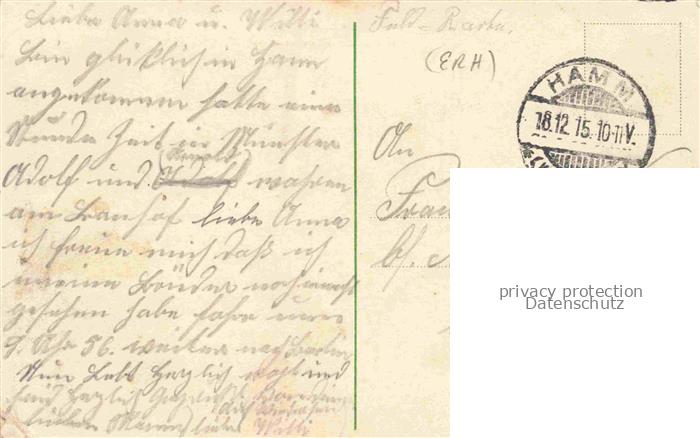 Liebe Anna u. Willi
Bin glücklich in Hamm
angekommen hatte eine
Stunde Zeit in Münster
Adolf und (Arnold) wahren
am Banhof liebe Anna
ich freue mich daß ich
meine Brüder noch einmal
gesehen habe fahre nun
9. Uhr 56. weiter nach Berlin
Nun Lebt Herzlich wohl und
seid herzlich gegrüßt
lieben Mannes
Willi
Feld=Karte.
(ERH)
HAMM
18.12.15.10-11V.
An
Frau
b/.
privacy protection
Datenschutz